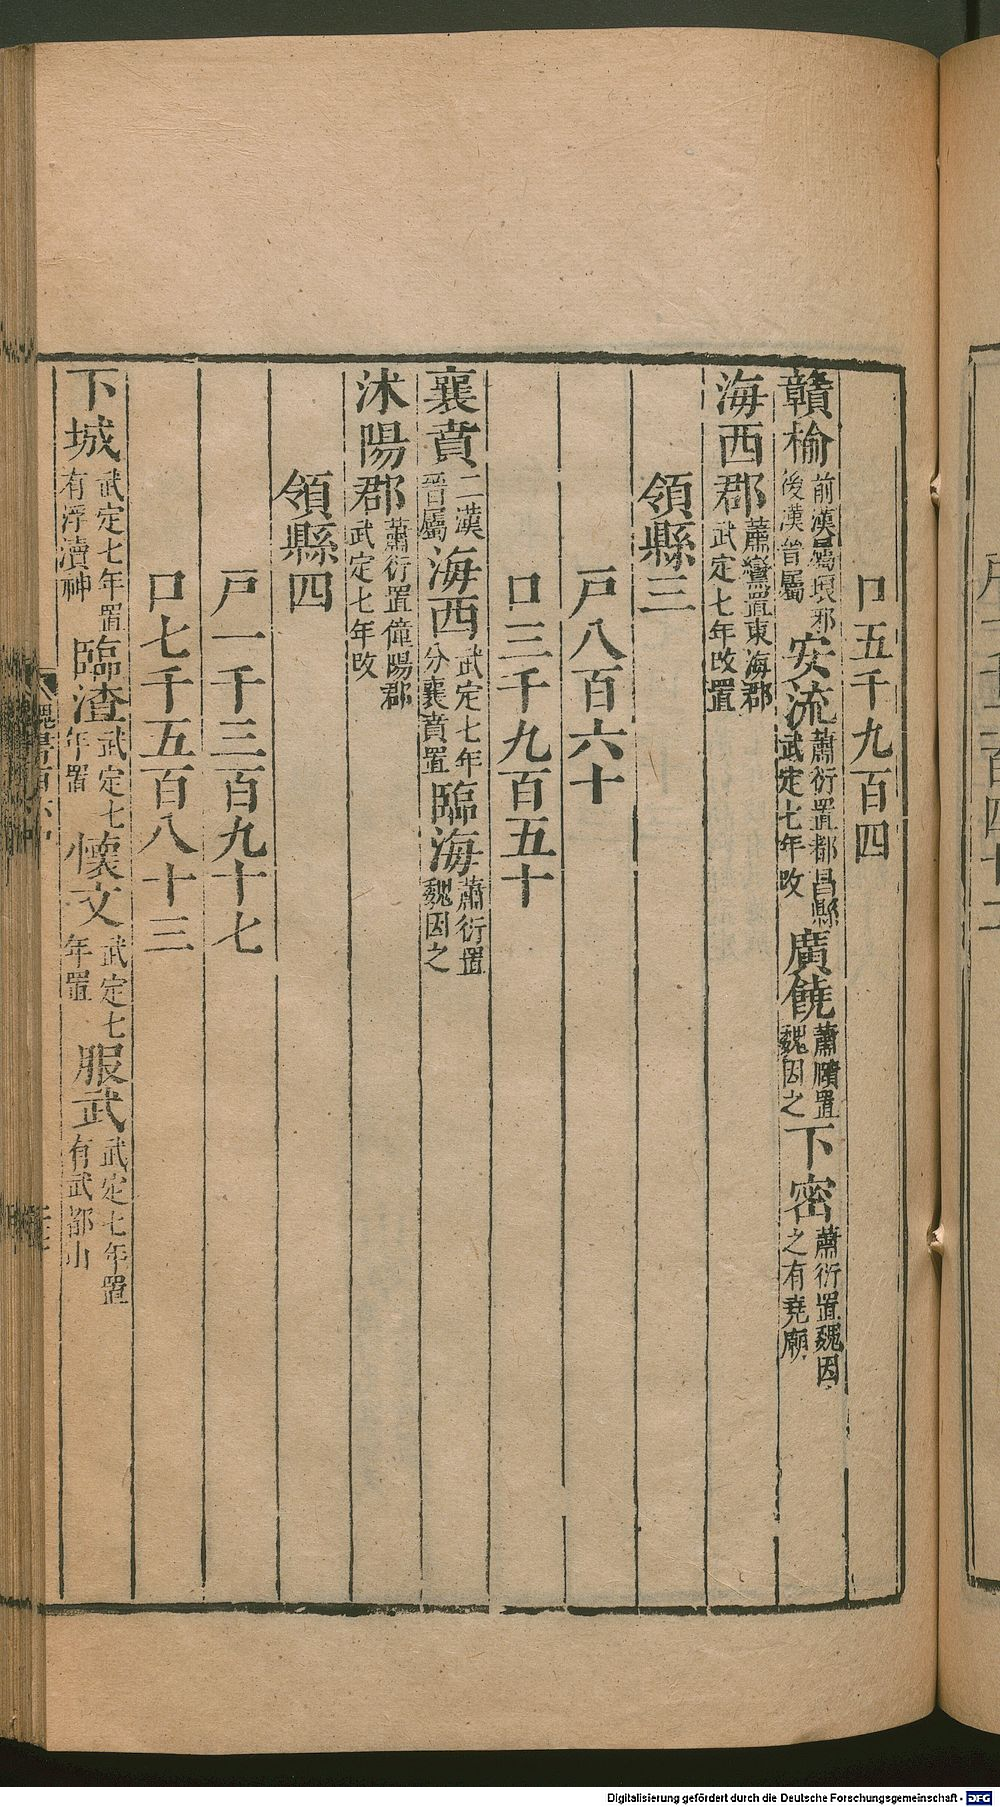 口五千九百四
贛榆前漢屬琅邪後漢晉屬安流蕭衍置都昌縣武定七年改廣饒蕭賾置魏因之下密蕭衍置魏因之有堯廟
海西郡蕭鸞置東海郡武定七年改置
領縣三
戸八百六十
口三千九百五十
襄賁二漢晉屬海西武定七年分襄賁置臨海蕭衍置魏因之
沭陽郡蕭衍置僮陽郡武定七年改
領縣四
戸一千三百九十七
口七千五百八十三
下城武定七年置有浮瀆神臨渣武定七年置懷文武定七年置服武武定七年置有武都山
Digitalisierung gefördert durch die Deutsche Forschungsgemeinschaft - DFG